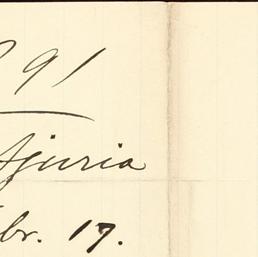 91
Ajuria
br. 17.